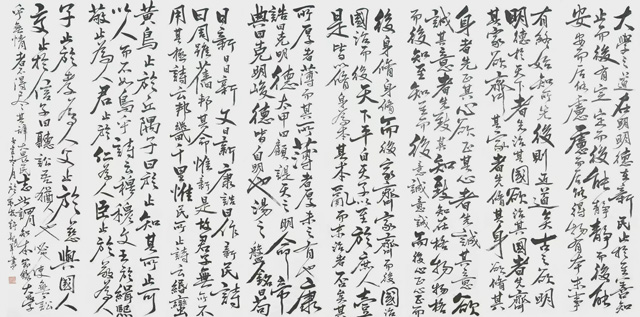 大學之道在明明德在新民在止於至善知
止而后有定定而后能靜靜而后能
安安而后能慮慮而后能得物有本末事
有終始知所先後則近道矣古之欲明
明德於天下者先治其國欲治其國者先齊
其家欲齊其家者先脩其身欲脩其
身者先正其心欲正其心者先誠其意欲
誠其意者先致其知致知在格物物格
而後知至知至而后意誠意誠而后心正心正而
后身脩身脩而后家齊家齊而后國治
國治而後天下平自天子以至於庶人壹
是皆以脩身為本其本亂而末治者否矣其
所厚者薄而其所薄者厚未之有也康
誥曰克明德大甲曰顧諟天之明命帝
典曰克明峻德皆自明也湯之盤銘曰苟
日新日日新又日新康誥曰作新民詩
曰周雖舊邦其命惟新是故君子無所不
用其極詩云邦畿千里惟民所止詩云緡蠻
黃鳥止於丘隅子曰於止知其所止可
以人而不如鳥乎詩云穆穆文王於緝熙
敬止為人君止於仁為人臣止於敬為人
子止於孝為人父止於慈與國人
交止於信子曰聽訟吾猶人也必也使無訟
乎無情者不得盡其辭大畏民志此謂知本